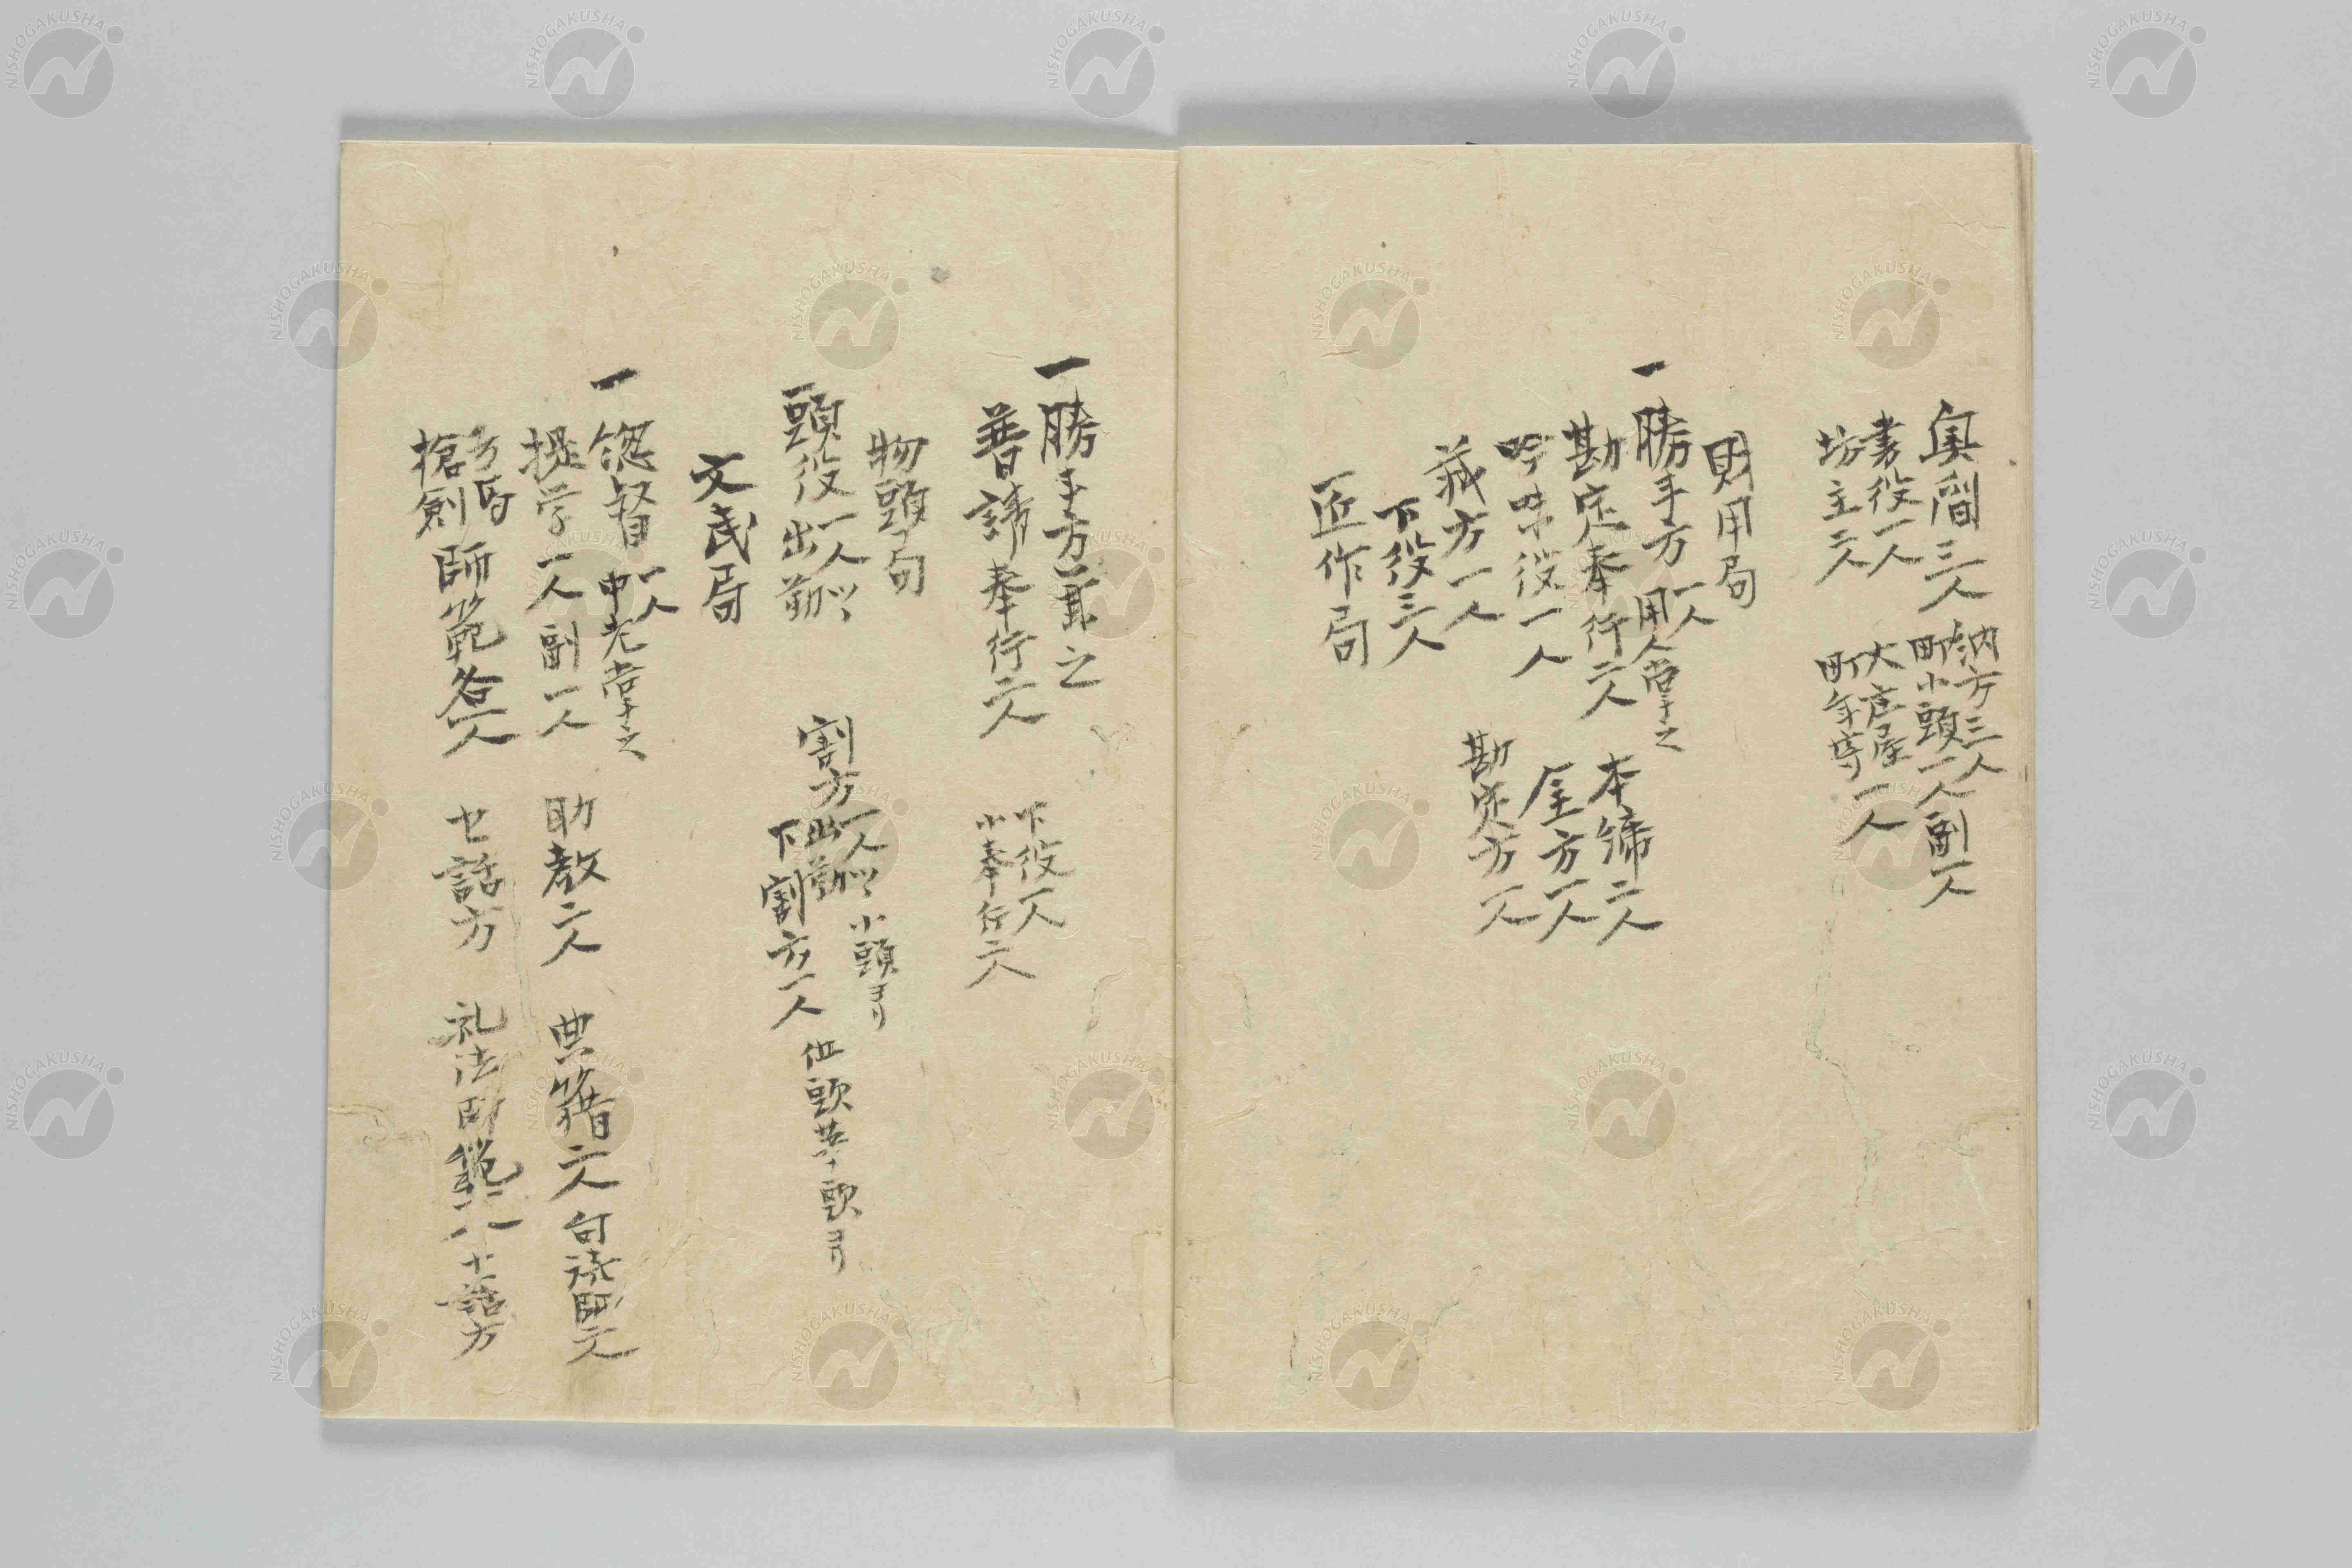 奥𨵵三人 納方三人
町小頭一人副一人
書役一人 大庄屋
坊主三人 町年寄一人
財用局
一勝手方一人用人掌之
勘定奉行二人 本締二人
吟味役一人 金方一人
蔵方一人 勘定方一人
下役三人
匠作局
一勝手方兼之
普請奉行二人 下役一人
小奉行二人
物頭局
一頭役一人ツヽ出勤 割方一人ツヽ出勤 小頭ヨリ
下割方一人 伍頭草頭ヨリ
文武局
一總督一人中老掌之
提学一人副一人 助教二人 典籍二人 句読師二人
弓馬
槍剣師範各一人 セ話方 礼法師範一人 セ話方
NISHOGAKUSHA